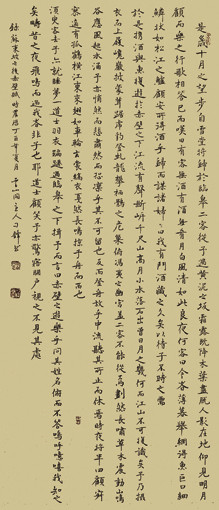 是歲十月之望步自雪堂將歸於臨皋二客從予過黃泥之坂霜露既降木葉盡脫人影在地仰見明月
顧而樂之行歌相答已而嘆曰有客無酒有酒無肴月白風清如此良夜何客曰今者薄暮舉網得魚巨口細
鱗狀如松江之鱸顧安所得酒乎歸而謀諸婦婦曰我有斗酒藏之久矣以待子不時之需
於是攜酒與魚復遊於赤壁之下江流有聲斷岸千尺山高月小水落石出曾日月之幾何而江山不可復識矣予乃攝
衣而上履巉巖披蒙茸踞虎豹登虯龍攀棲鶻之危巢俯馮夷之幽宮蓋二客不能從焉劃然長嘯草木震動山鳴
谷應風起水涌予亦悄然而悲肅然而恐凜乎其不可留也反而登舟放乎中流聽其所止而休焉時夜將半四顧寂
寥適有孤鶴橫江東來翅如車輪玄裳縞衣戛然長鳴掠予舟而西也
須臾客去予亦就睡夢一道士羽衣蹁躚過臨皋之下揖予而言曰赤壁之遊樂乎問其姓名俯而不答嗚呼噫嘻我知之
矣疇昔之夜飛鳴而過我者非子也耶道士顧笑予亦驚寤開戶視之不見其處
錄蘇東坡後赤壁賦